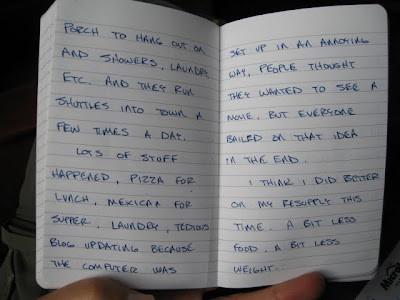 PORCH TO HANG OUT ON
AND SHOWERS, LAUNDRY,
ETC. AND THEY RUN
SHUTTLES INTO TOWN A
FEW TIMES A DAY.
LOTS OF STUFF
HAPPENED, PIZZA FOR
LUNCH, MEXICAN FOR
SUPPER, LAUNDRY, TEDIOUS
BLOG UPDATING BECAUSE
THE COMPUTER WAS
SET UP IN AN ANNOYING
WAY, PEOPLE THOUGHT
THEY WANTED TO SEE A
MOVIE, BUT EVERYONE
BAILED ON THAT IDEA
IN THE END.
I THINK I DID BETTER
ON MY RESUPPLY THIS
TIME. A BIT LESS
FOOD. A BIT LESS
WEIGHT.